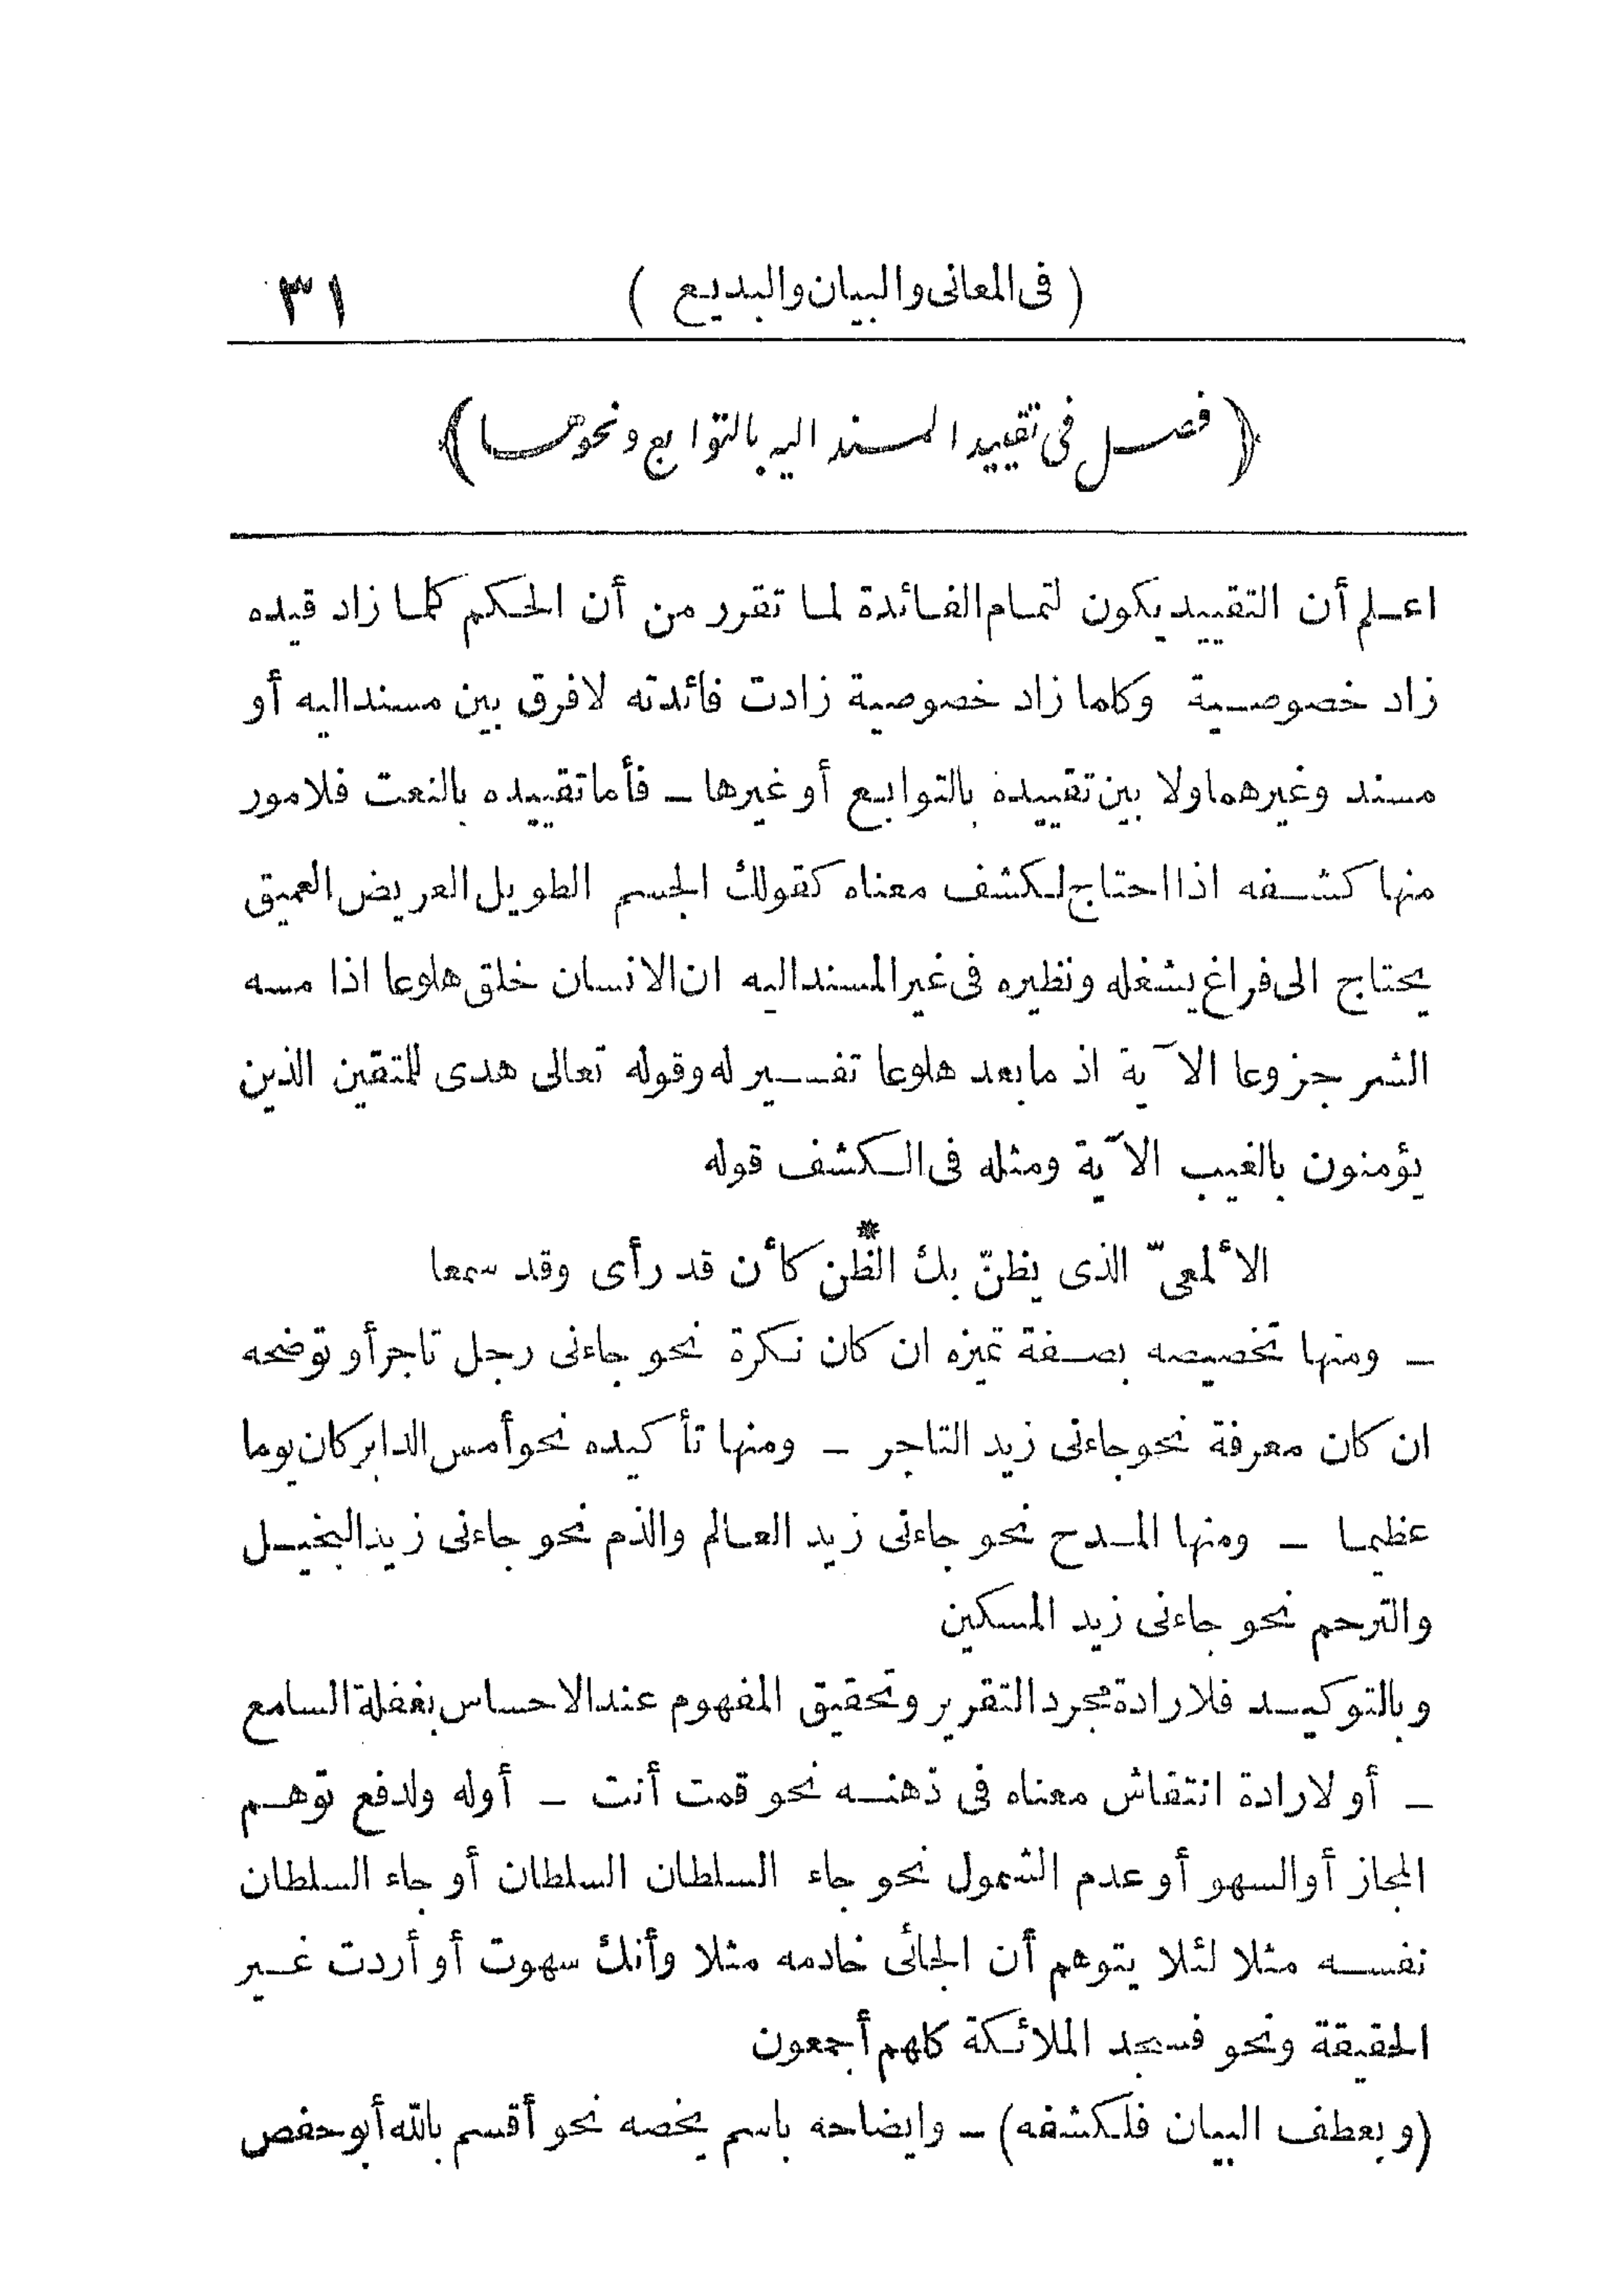 ( فى المعانى والبيان والبديع ) ٣١
﴿ فصل فى تقييد المسند اليه بالتوابع ونحوها ﴾
اعلم أن التقييد يكون لتمام الفائدة لما تقرر من أن الحكم كلما زاد قيده
زاد خصوصية وكلما زاد خصوصية زادت فائدته لافرق بين مسند اليه أو
مسند وغيرهما ولا بين تقييده بالتوابع أو غيرها ــ فأما تقييده بالنعت فلامور
منها كشفه اذا احتاج لكشف معناه كقولك الجسم الطويل العريض العميق
يحتاج الى فراغ يشغله ونظيره فى غير المسند اليه ان الانسان خلق هلوعا اذا مسه
الشر جزوعا الآية اذ ما بعد هلوعا تفسير له وقوله تعالى هدى للمتقين الذين
يؤمنون بالغيب الآية ومثله فى الكشف قوله
الألمعىّ الذى يظنّ بك الظّن * كأن قد رأى وقد سمعا
ــ ومنها تخصيصه بصفة تميزه ان كان نكرة نحو جاءنى رجل تاجر أو توضحه
ان كان معرفة نحو جاءنى زيد التاجر ــ ومنها تأكيده نحو أمس الدابر كان يوما
عظيما ــ ومنها المدح نحو جاءنى زيد العالم والذم نحو جاءنى زيد البخيل
والترحم نحو جاءنى زيد المسكين
وبالتوكيد فلارادة مجرد التقرير وتحقيق المفهوم عند الاحساس بغفلة السامع
ــ أو لارادة انتقاش معناه فى ذهنه نحو قمت أنت ــ أوله ولدفع توهم
المجاز أو السهو أو عدم الشمول نحو جاء السلطان السلطان أو جاء السلطان
نفسه مثلا لئلا يتوهم أن الجائى خادمه مثلا وأنك سهوت أو أردت غير
الحقيقة ونحو فسجد الملائكة كلهم أجمعون
(وبعطف البيان فلكشفه) ــ وايضاحه باسم يخصه نحو أقسم بالله أبو حفص